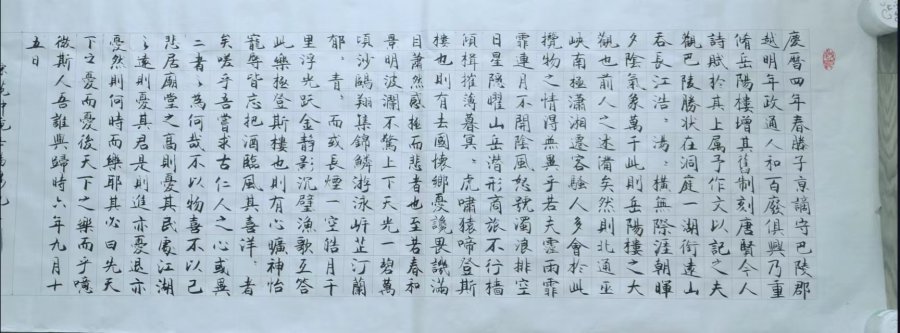 慶曆四年春滕子京謫守巴陵郡
越明年政通人和百廢俱興乃重
脩岳陽樓增其舊制刻唐賢今人
詩賦於其上属予作文以記之夫
觀巴陵勝状在洞庭一湖銜遠山
吞長江浩〻湯〻橫無際涯朝暉
夕陰氣象萬千此則岳陽樓之大
觀也前人之述備矣然則北通巫
峽南極瀟湘遷客騷人多會於此
攬物之情得無異乎若夫霪雨霏
霏連月不開陰風怒號濁浪排空
日星隱曜山岳潛形商旅不行檣
傾楫摧薄暮冥〻虎嘯猿啼登斯
樓也則有去國懷鄉憂讒畏譏滿
目蕭然感極而悲者也至若春和
景明波瀾不驚上下天光一碧萬
頃沙鷗翔集錦鱗游泳岸芷汀蘭
郁〻青〻而或長煙一空皓月千
里浮光跃金静影沉璧漁歌互答
此樂極登斯樓也則有心曠神怡
寵辱皆忘把酒臨風其喜洋〻者
矣嗟乎吾嘗求古仁人之心或異
二者〻為何哉不以物喜不以己
悲居廟堂之高則憂其民處江湖
之遠則憂其君是則進亦憂退亦
憂然則何時而樂耶其必曰先天
下之憂而憂後天下之樂而乎噫
微斯人吾誰與歸時六年九月十
五日